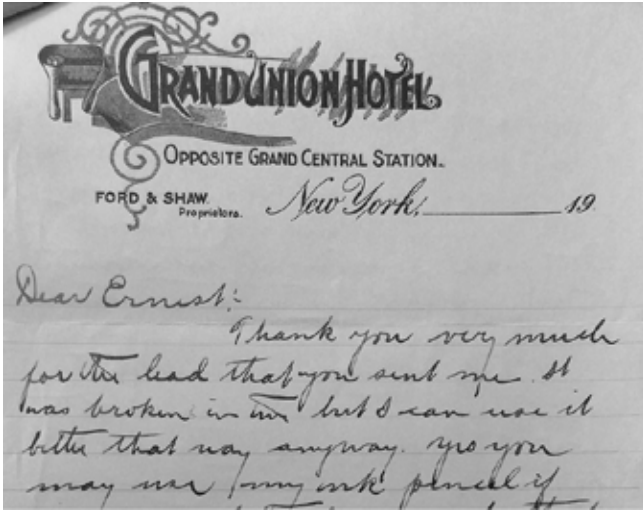 GRAND UNION HOTEL
OPPOSITE GRAND CENTRAL STATION.
FORD & SHAW.
Proprietors.
New York, 19
Dear Ernest:
Thank you very much
for the lead that you sent me. It
was broken in two but I can use it
better that way anyway. Yes you
may use my ink pencil if